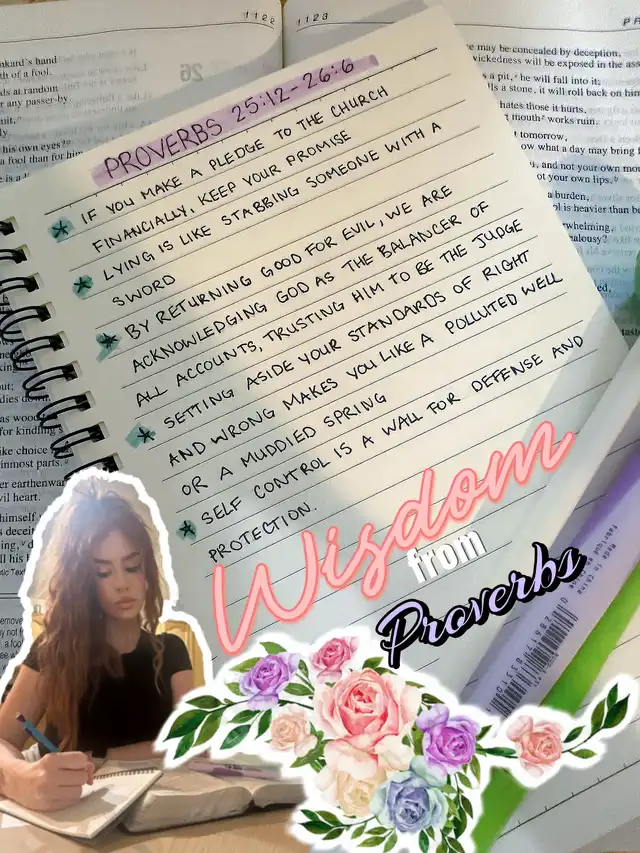 1122
1123
PR
nkard's hand
th of a fool.
ds at random
r any passer-by.
his own eyes?
a fool than for him
e may be concealed by deception,
wickedness will be exposed in the asse
s a pit, he will fall into it;
lls a stone, it will roll back on him
hates those it hurts,
mouth works ruin.
tomorrow,
ow what a day may bring f
, and not your own mou
ot your own lips.
a burden,
ol is heavier than bo
whelming,
ealousy?
PROVERBS 25:12-26:6
IF YOU MAKE A PLEDGE TO THE CHURCH
FINANCIALLY, KEEP YOUR PROMISE
LYING IS LIKE STABBING SOMEONE WITH A
SWORD
BY RETURNING GOOD FOR EVIL, WE ARE
ACKNOWLEDGING GOD AS THE BALANCER OF
ALL ACCOUNTS, TRUSTING HIM TO BE THE JUDGE
SETTING ASIDE YOUR STANDARDS OF RIGHT
AND WRONG MAKES YOU LIKE A POLLUTED WELL
OR A MUDDIED SPRING
SELF CONTROL IS A WALL FOR DEFENSE AND
PROTECTION.
dies do
as wood
for kindling
ike choice
inmost parts.
er earthenwar
vil heart.
himself
s deceit
Wisdom
from
Proverbs
Made in China